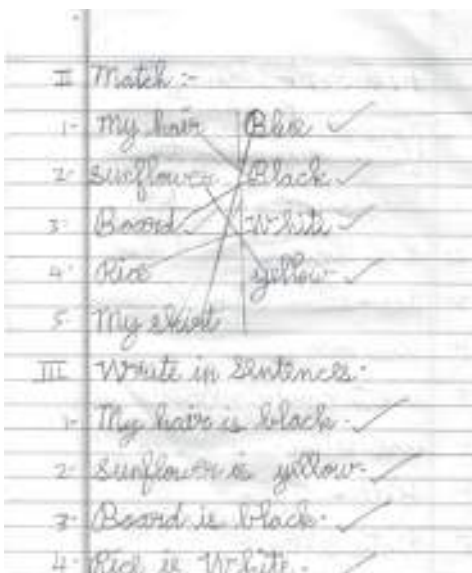 II Match :-
1- My hair Blue
2- Sunflower Black
3- Board White
4- Rice yellow
5- My skirt
III Write in Sentences.
1- My hair is black.
2- Sunflower is yellow.
3- Board is black.
4- Rice is White.